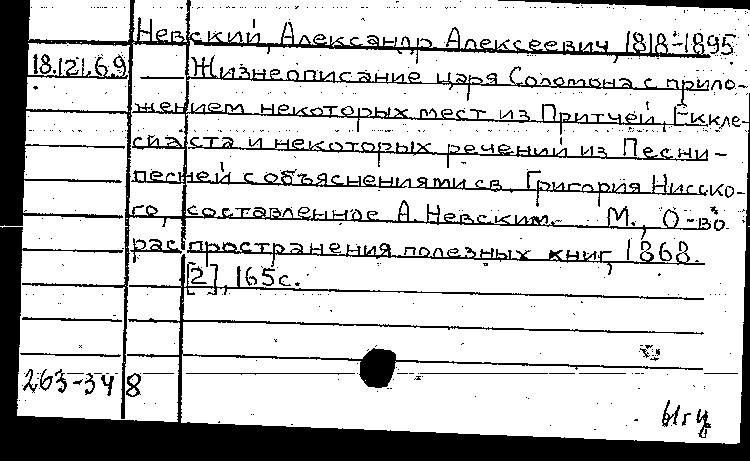 Невский, Александр Алексеевич, 1818-1895
18.121.6.9 Жизнеописание царя Соломона с прило-
жением некоторых мест из Притчей, Еккле-
сиаста и некоторых речений из Песни-
песней с объяснениями св. Григория Нисско-
го, составленное А. Невским. М., О-во
распространения полезных книг, 1868.
[2], 165 с.
263-34 8